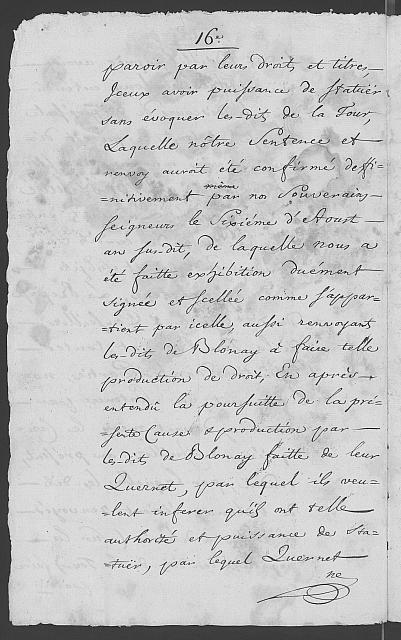 16.e
paroir par leurs droits et titres,
Jceux avoir puissance de statüer
sans évoquer les-dits de la Tour,
Laquelle nôtre Sentence et
renvoy auroit été confirmé deffi-
-nitivement même par nos Souverains
seigneurs le Sixiéme d'Aoust
an sus-dit, de laquelle nous a
été faitte exhibition duëment
signée et scellée comme s'appar-
-tient par icelle, aussi renvoyant
les-dits de Blonay à faire telle
production de droit, En aprés
entendu la poursuitte de la pré-
-sente Cause & production par
les-dits de Blonay faitte de leur
Quernet, par lequel ils veu-
-lent inferer qu'ils ont telle
authorité et puissance de Sta-
-tuër, par lequel Quernet
ne